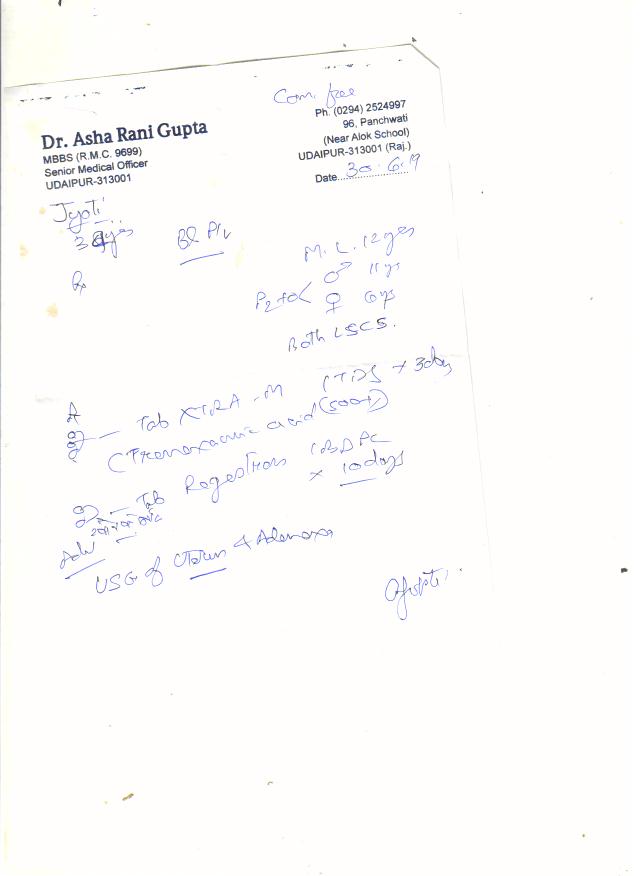 Com. free
Dr. Asha Rani Gupta
MBBS (R.M.C. 9699)
Senior Medical Officer
UDAIPUR-313001
Ph. (0294) 2524997
96, Panchwati
(Near Alok School)
UDAIPUR-313001 (Raj.)
Date.....30.6.19
Jyoti
Bl P/v
M.L. 12 yrs
Rx
♂ 11 ys
P2+0 <
♀ 6 ys
Both LSCS.
Tab XTRA-M (TDS × 3 days
(Tranexaemic acid (500+)
Tab Regestron (BD) PC
× 10 days
Adv
USG of Uterus & Adenexa